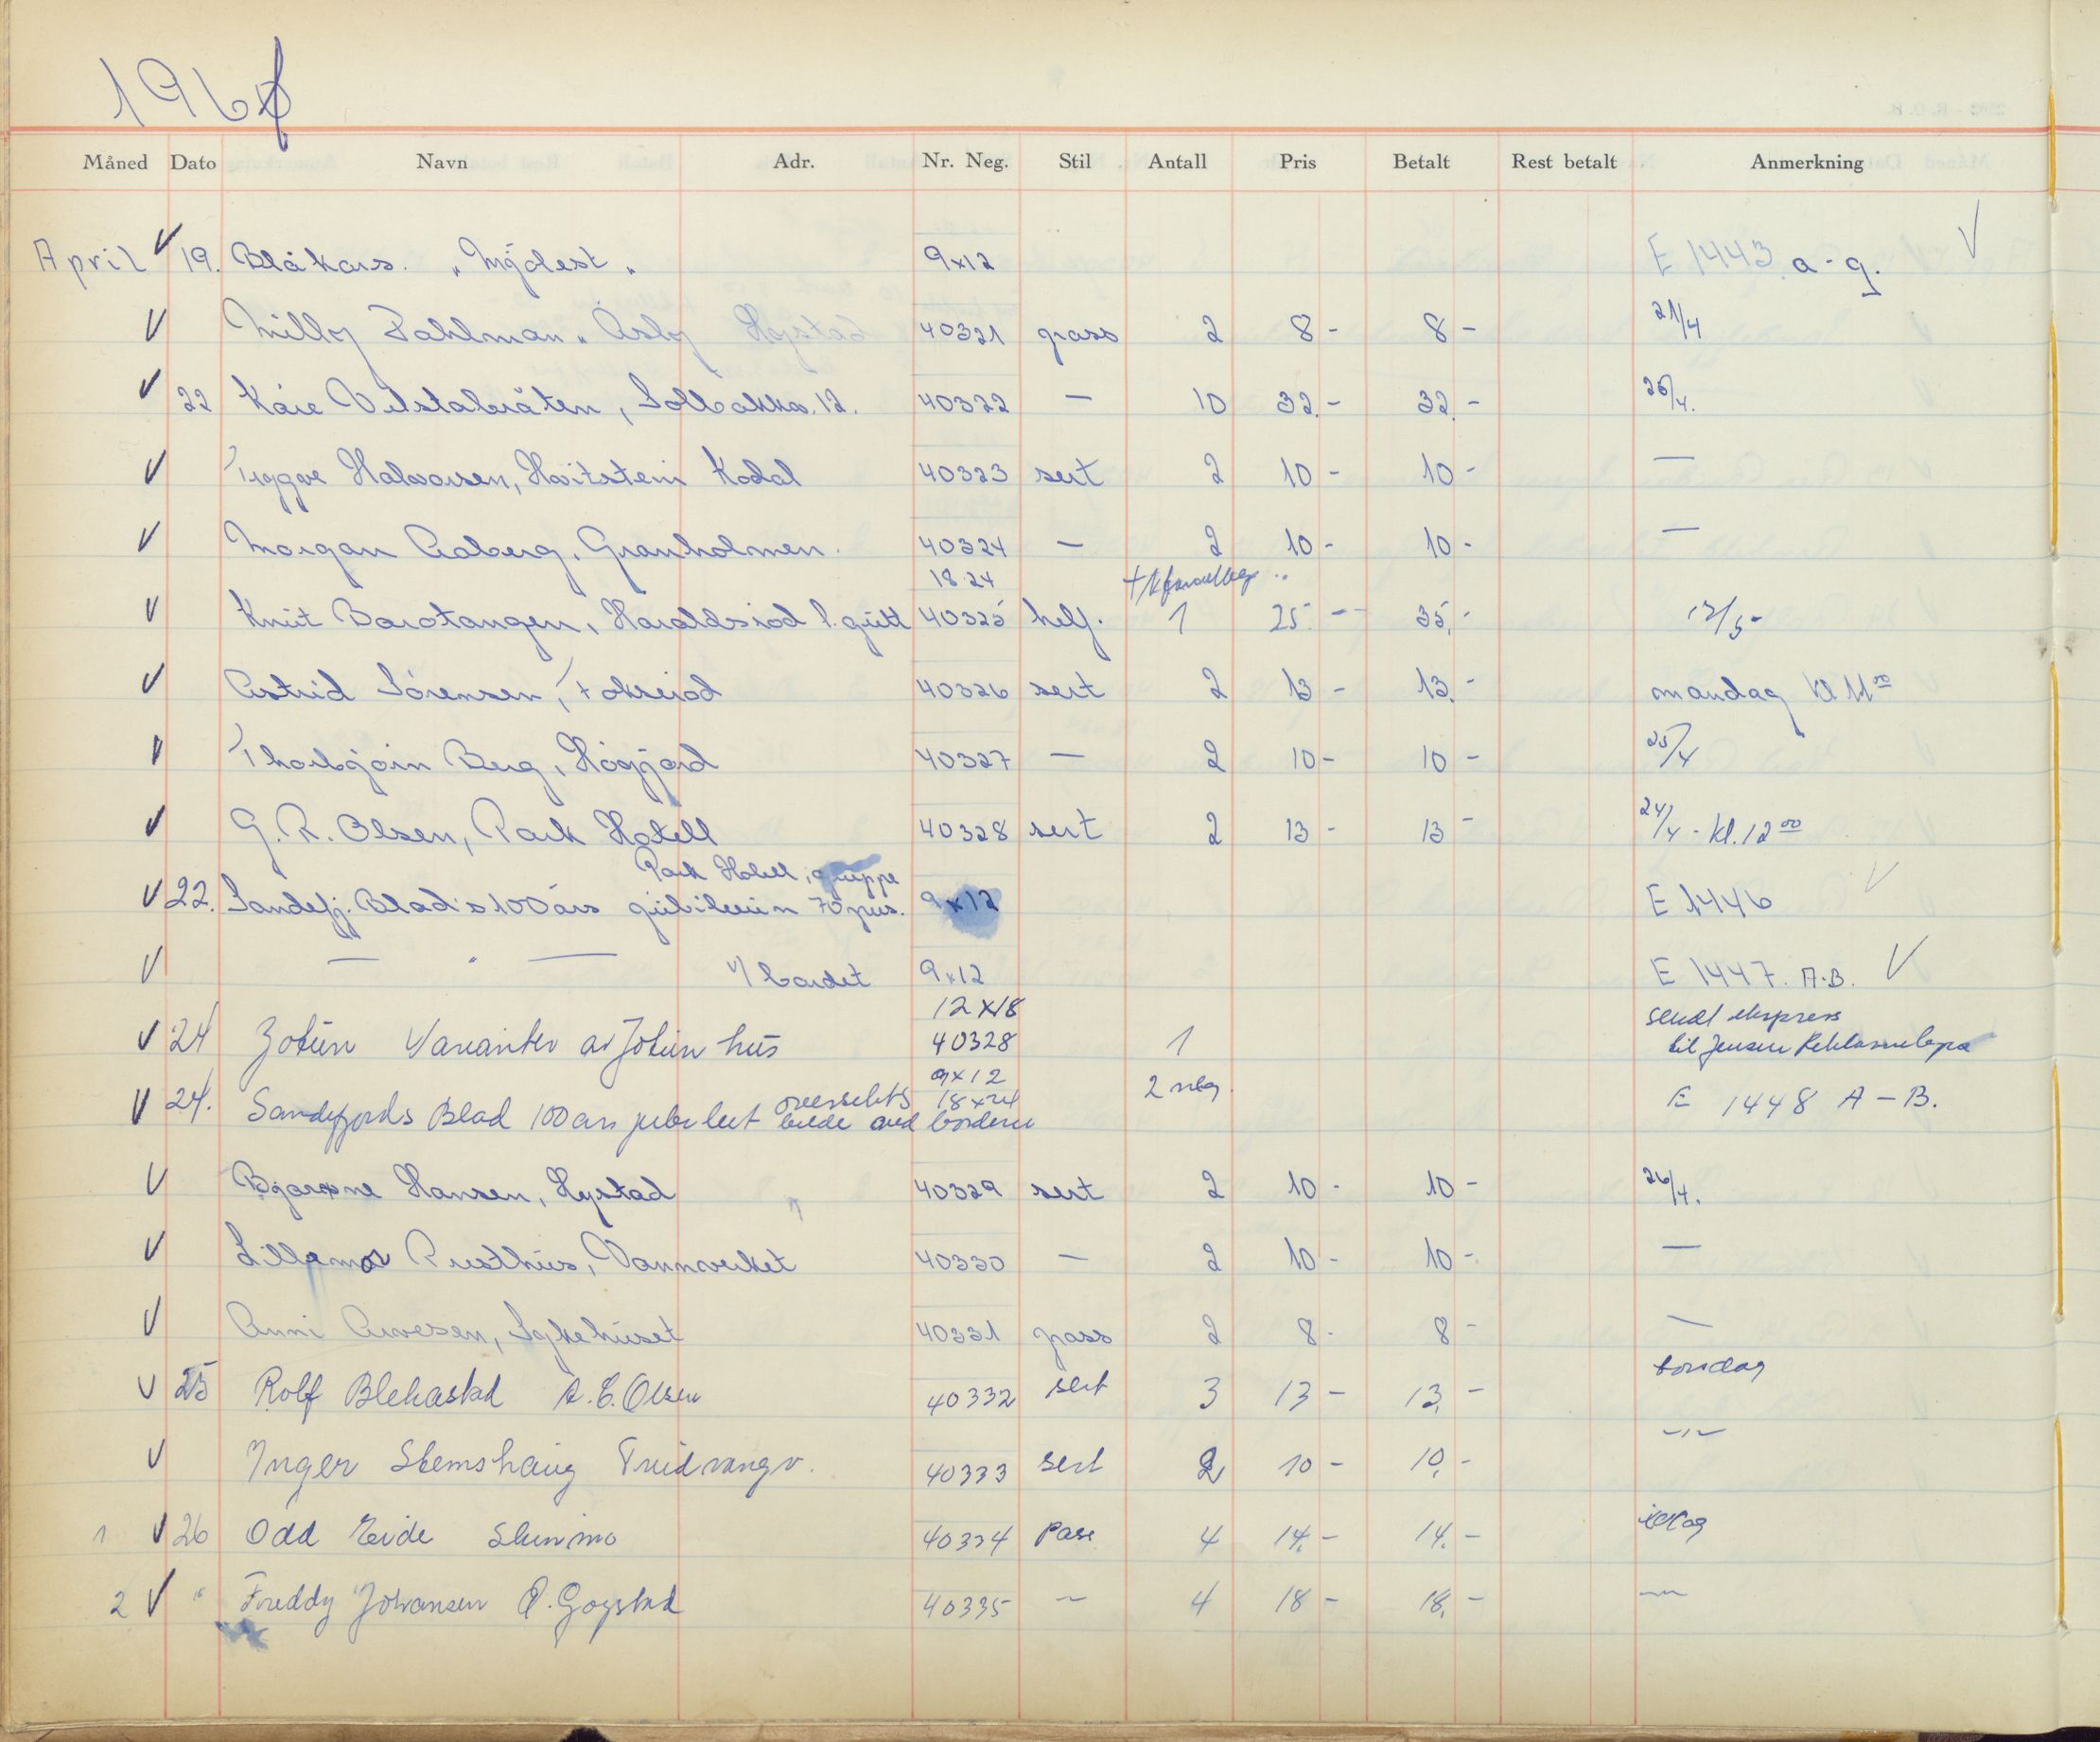 196
Måned Dato Navn Adr. Nr. Neg. Stil Antall Pris Betalt Rest betalt Anmerkning
April ✓ 19. Blåkors. „Mjølest" 9x12 E 1443 a-g. ✓
✓ Milly Dahlman, Åsly Hystad 40321 pass 2 8- 8- 21/4
✓ 22 Kåre Vilstabråten, Solbakka. 12. 40322 — 10 32.- 32.- 26/4.
✓ Tryggve Halvorsen, Hvitstein Kodal 40323 sert 2 10- 10- —
✓ Morgan Aaberg, Granholmen. 40324 — 2 10- 10- —
18.24
✓ Knut Barotangen, Haraldsrød l. gutt 40325 helf. 1 25.- 35.- 12/5-
✓ Astrid Sørensen, Fokserød 40326 sert 2 13- 13.- mandag kl 11⁰⁰
✓ Thorbjørn Berg, Høgjord 40327 — 2 10- 10- 25/4
✓ G. R. Olsen, Park Hotell 40328 sert 2 13- 13- 24/4 - kl. 12⁰⁰
Park Hotell, gruppe
✓ 22. Sandefj. Blad's 100 års jubileum 70 pers. 9x12 E 1446 ✓
✓ — " — v/ bordet 9x12 E 1447. A.B. ✓
12x18 sendt ekspress
✓ 24 Jotun Varianter av Jotun hus 40328 1 til Jensen Reklame
9x12
✓ 24. Sandefjords Blad 100 års oversikts 18x24 2 neg. E 1448 A-B.
bilde ved bordene
✓ Bjarne Hansen, Hystad 40329 sert 2 10- 10- 26/4.
✓ Lillemor Presthus, Vannverket 40330 — 2 10- 10- —
✓ Anni Arvesen, Sykehuset 40331 pass 2 8- 8- —
✓ 25 Rolf Blekastad A. E. Olsen 40332 sert 3 13- 13.- torsdag
✓ Inger Stemshaug Fridvangv. 40333 sert 2 10- 10.- -"-
1 ✓ 26 Odd Eide 40334 Pass 4 14.- 14.-
2 ✓ " Freddy Johansen Ø. Gogstad 40335 — 4 18- 18.- —